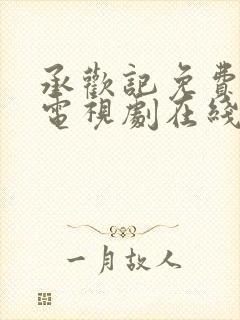 承歡記免費
電視劇在綫
一月故人